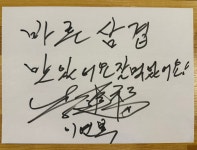 바른 삼겹
맛있어요 잘먹었어요!
이연복